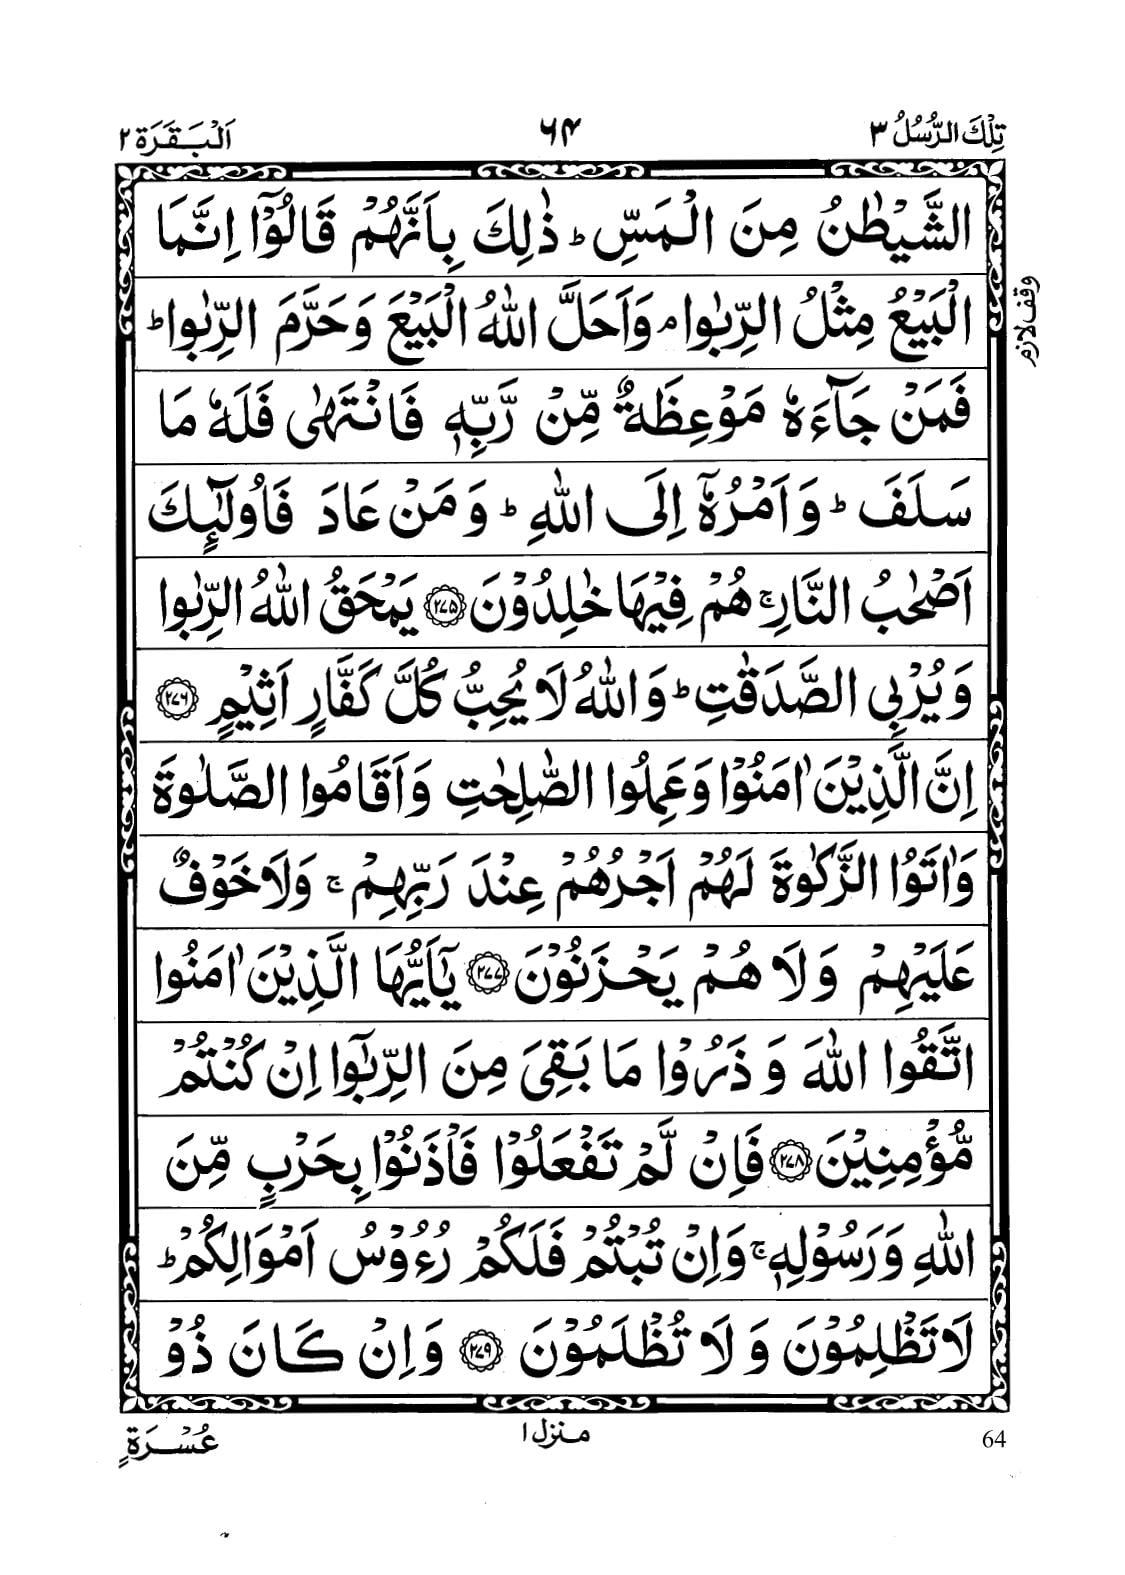 تِلْكَ الرُّسُلُ ٣
٦٤
اَلْبَقَرَة ٢
الشَّيْطٰنُ مِنَ الْمَسِّ ؕ ذٰلِكَ بِاَنَّهُمْ قَالُوْۤا اِنَّمَا
الْبَيْعُ مِثْلُ الرِّبٰوا ۘ وَاَحَلَّ اللّٰهُ الْبَيْعَ وَ حَرَّمَ الرِّبٰوا ؕ
وقف لازم
فَمَنْ جَآءَهٗ مَوْعِظَةٌ مِّنْ رَّبِّهٖ فَانْتَهٰى فَلَهٗ مَا
سَلَفَ ؕ وَاَمْرُهٗۤ اِلَى اللّٰهِ ؕ وَمَنْ عَادَ فَاُولٰٓئِكَ
اَصْحٰبُ النَّارِ ۚ هُمْ فِيْهَا خٰلِدُوْنَ ﴿۲۷۵﴾ يَمْحَقُ اللّٰهُ الرِّبٰوا
وَيُرْبِى الصَّدَقٰتِ ؕ وَاللّٰهُ لَا يُحِبُّ كُلَّ كَفَّارٍ اَثِيْمٍ ﴿۲۷۶﴾
اِنَّ الَّذِيْنَ اٰمَنُوْا وَعَمِلُوا الصّٰلِحٰتِ وَاَقَامُوا الصَّلٰوةَ
وَاٰتَوُا الزَّكٰوةَ لَهُمْ اَجْرُهُمْ عِنْدَ رَبِّهِمْ ۚ وَلَا خَوْفٌ
عَلَيْهِمْ وَلَا هُمْ يَحْزَنُوْنَ ﴿۲۷۷﴾ يٰۤاَيُّهَا الَّذِيْنَ اٰمَنُوا
اتَّقُوا اللّٰهَ وَ ذَرُوْا مَا بَقِىَ مِنَ الرِّبٰۤوا اِنْ كُنْتُمْ
مُّؤْمِنِيْنَ ﴿۲۷۸﴾ فَاِنْ لَّمْ تَفْعَلُوْا فَاْذَنُوْا بِحَرْبٍ مِّنَ
اللّٰهِ وَرَسُوْلِهٖ ۚ وَاِنْ تُبْتُمْ فَلَكُمْ رُءُوْسُ اَمْوَالِكُمْ ؕ
لَا تَظْلِمُوْنَ وَ لَا تُظْلَمُوْنَ ﴿۲۷۹﴾ وَاِنْ كَانَ ذُوْ
عُسْرَةٍ
منزل ١
64